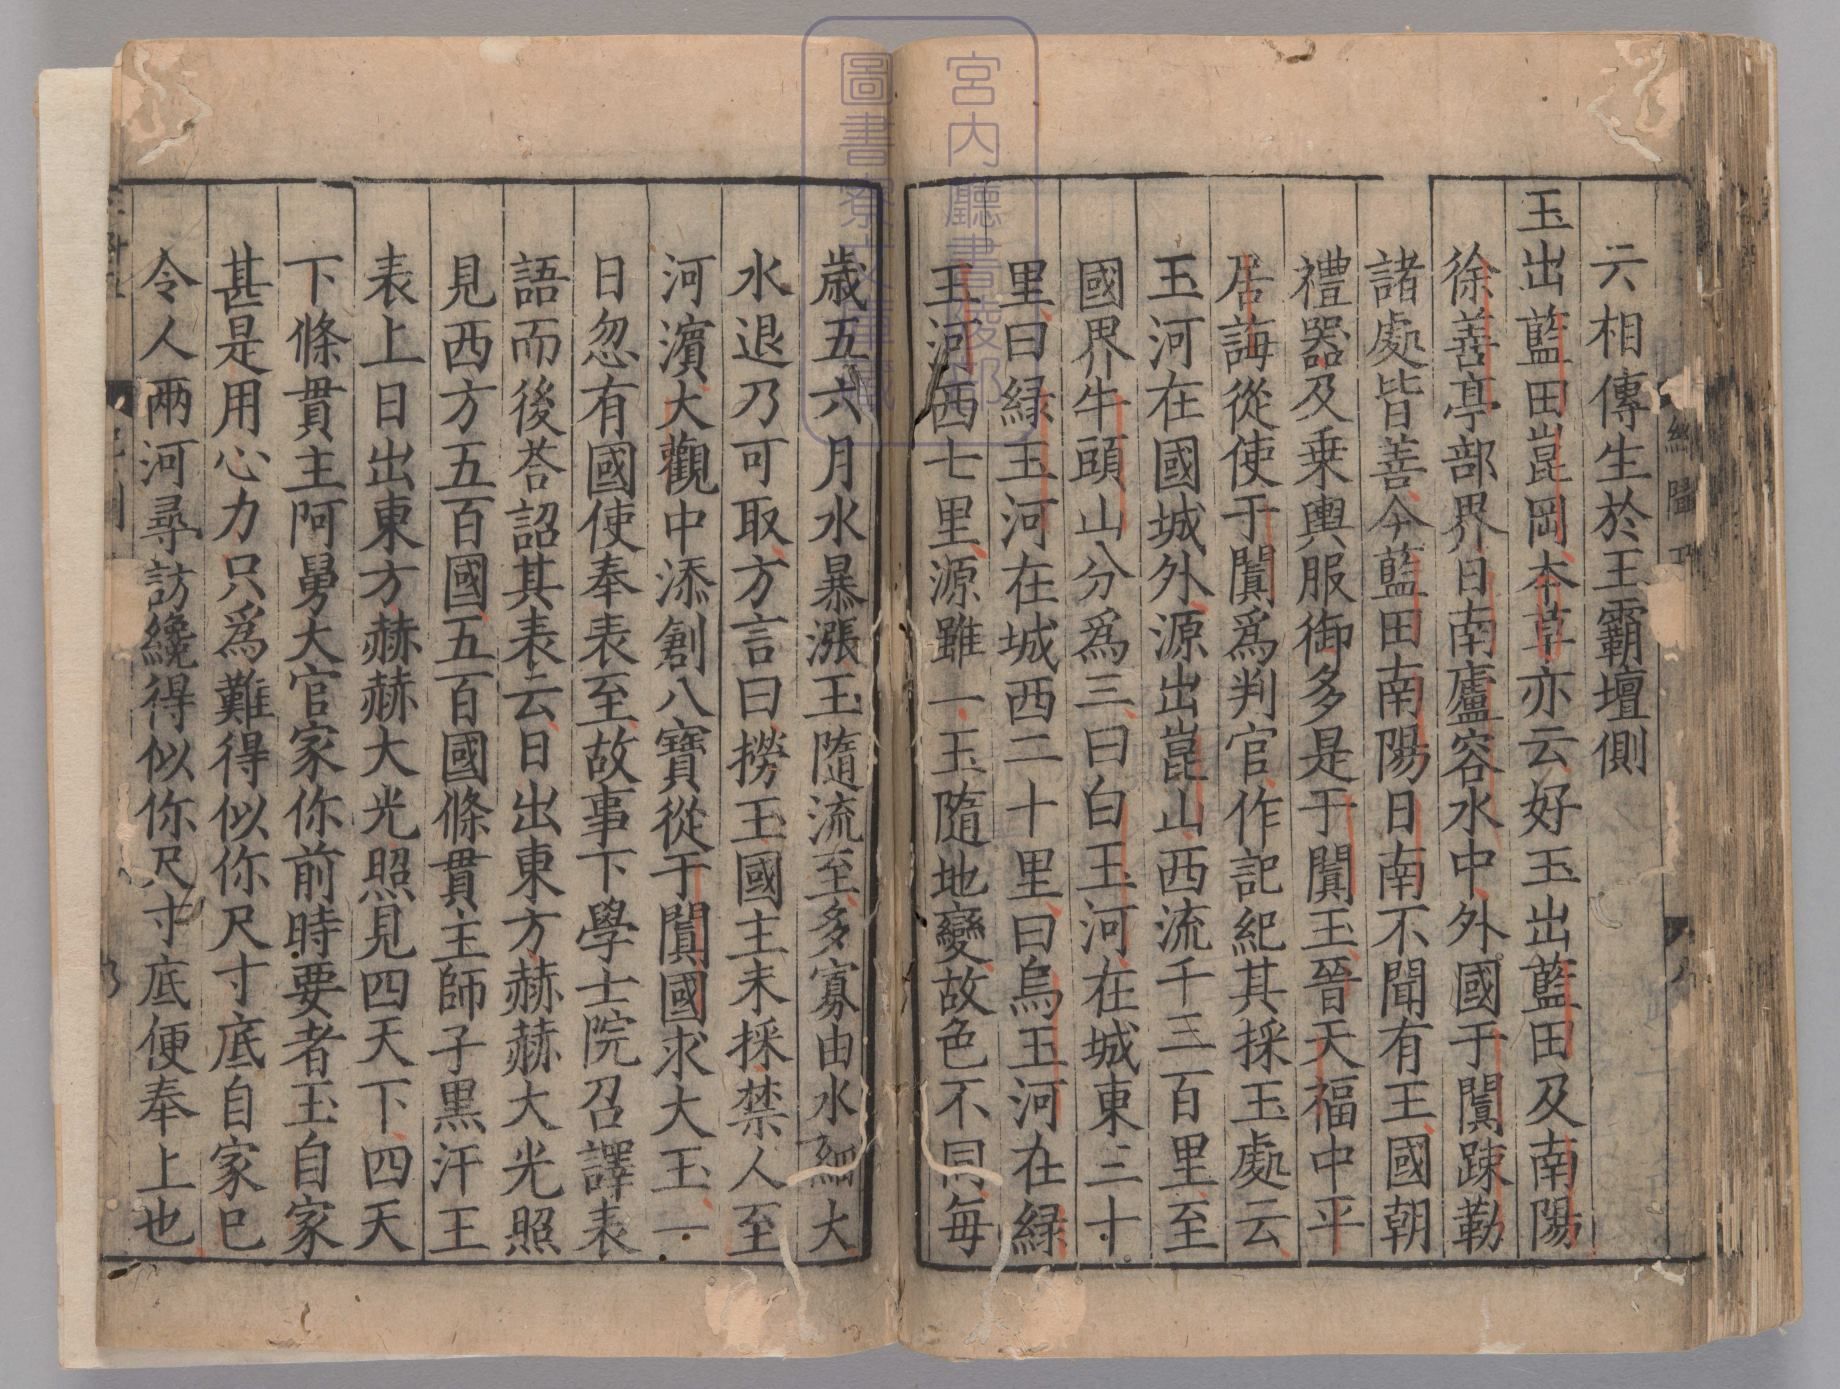 云相傳生於王霸壇側
玉出藍田崑岡本草亦云好玉出藍田及南陽
徐善亭部界日南盧容水中外國于闐踈勒
諸處皆善今藍田南陽日南不聞有玉國朝
禮器及乗輿服御多是于闐玉晉天福中平
居誨從使于闐為判官作記紀其採玉處云
玉河在國城外源出崑山西流千三百里至
國界牛頭山分為三曰白玉河在城東三十
里曰緑玉河在城西二十里曰烏玉河在緑
玉河西七里源雖一玉隨地變故色不同每
歲五六月水暴漲玉隨流至多寡由水細大
水退乃可取方言曰撈玉國主未採禁人至
河濱大觀中添創八寶從于闐國求大玉一
日忽有國使奉表至故事下學士院召譯表
語而後荅詔其表云日出東方赫赫大光照
見西方五百國五百國條貫主師子黒汗王
表上日出東方赫赫大光照見四天下四天
下條貫主阿舅大官家你前時要者玉自家
甚是用心力只為難得似你尺寸底自家已
令人兩河尋訪纔得似你尺寸底便奉上也
宮内廳書陵部
圖書寮文庫藏